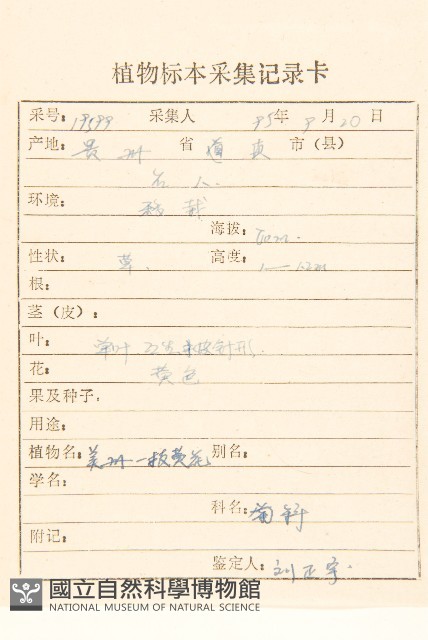 植物标本采集记录卡
采号: 19599 采集人 95年 9月20日
产地: 贵州 省 道真 市(县)
环境: 移栽
海拔:
性状: 草. 高度: 1—1.2m
根:
茎(皮):
叶:
花: 黄色
果及种子:
用途:
植物名: 美州一枝黄花 别名:
学名:
科名: 菊科
附记:
鉴定人: 刘正宇.
國立自然科學博物館
NATIONAL MUSEUM OF NATURAL SCIENCE